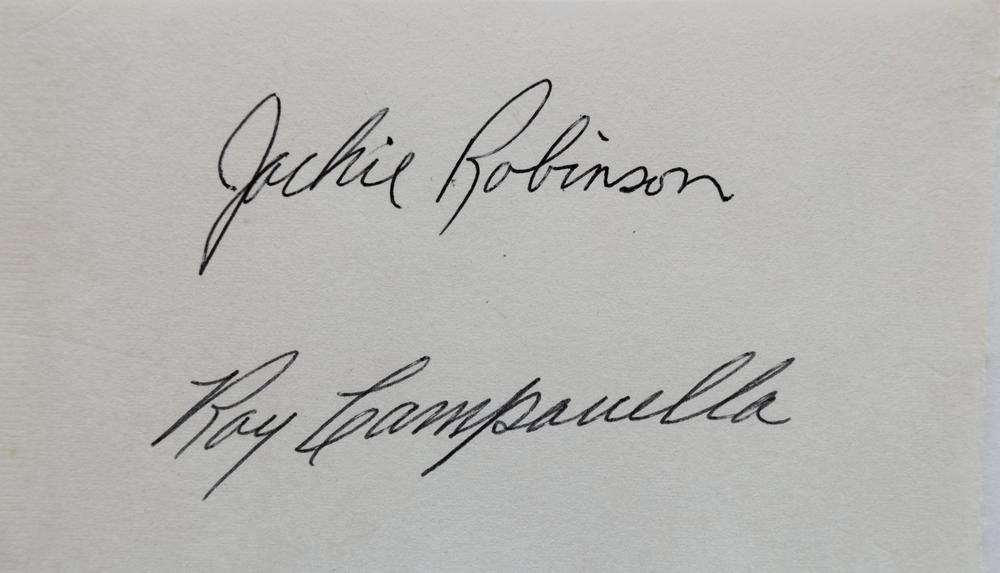 Jackie Robinson
Roy Campanella